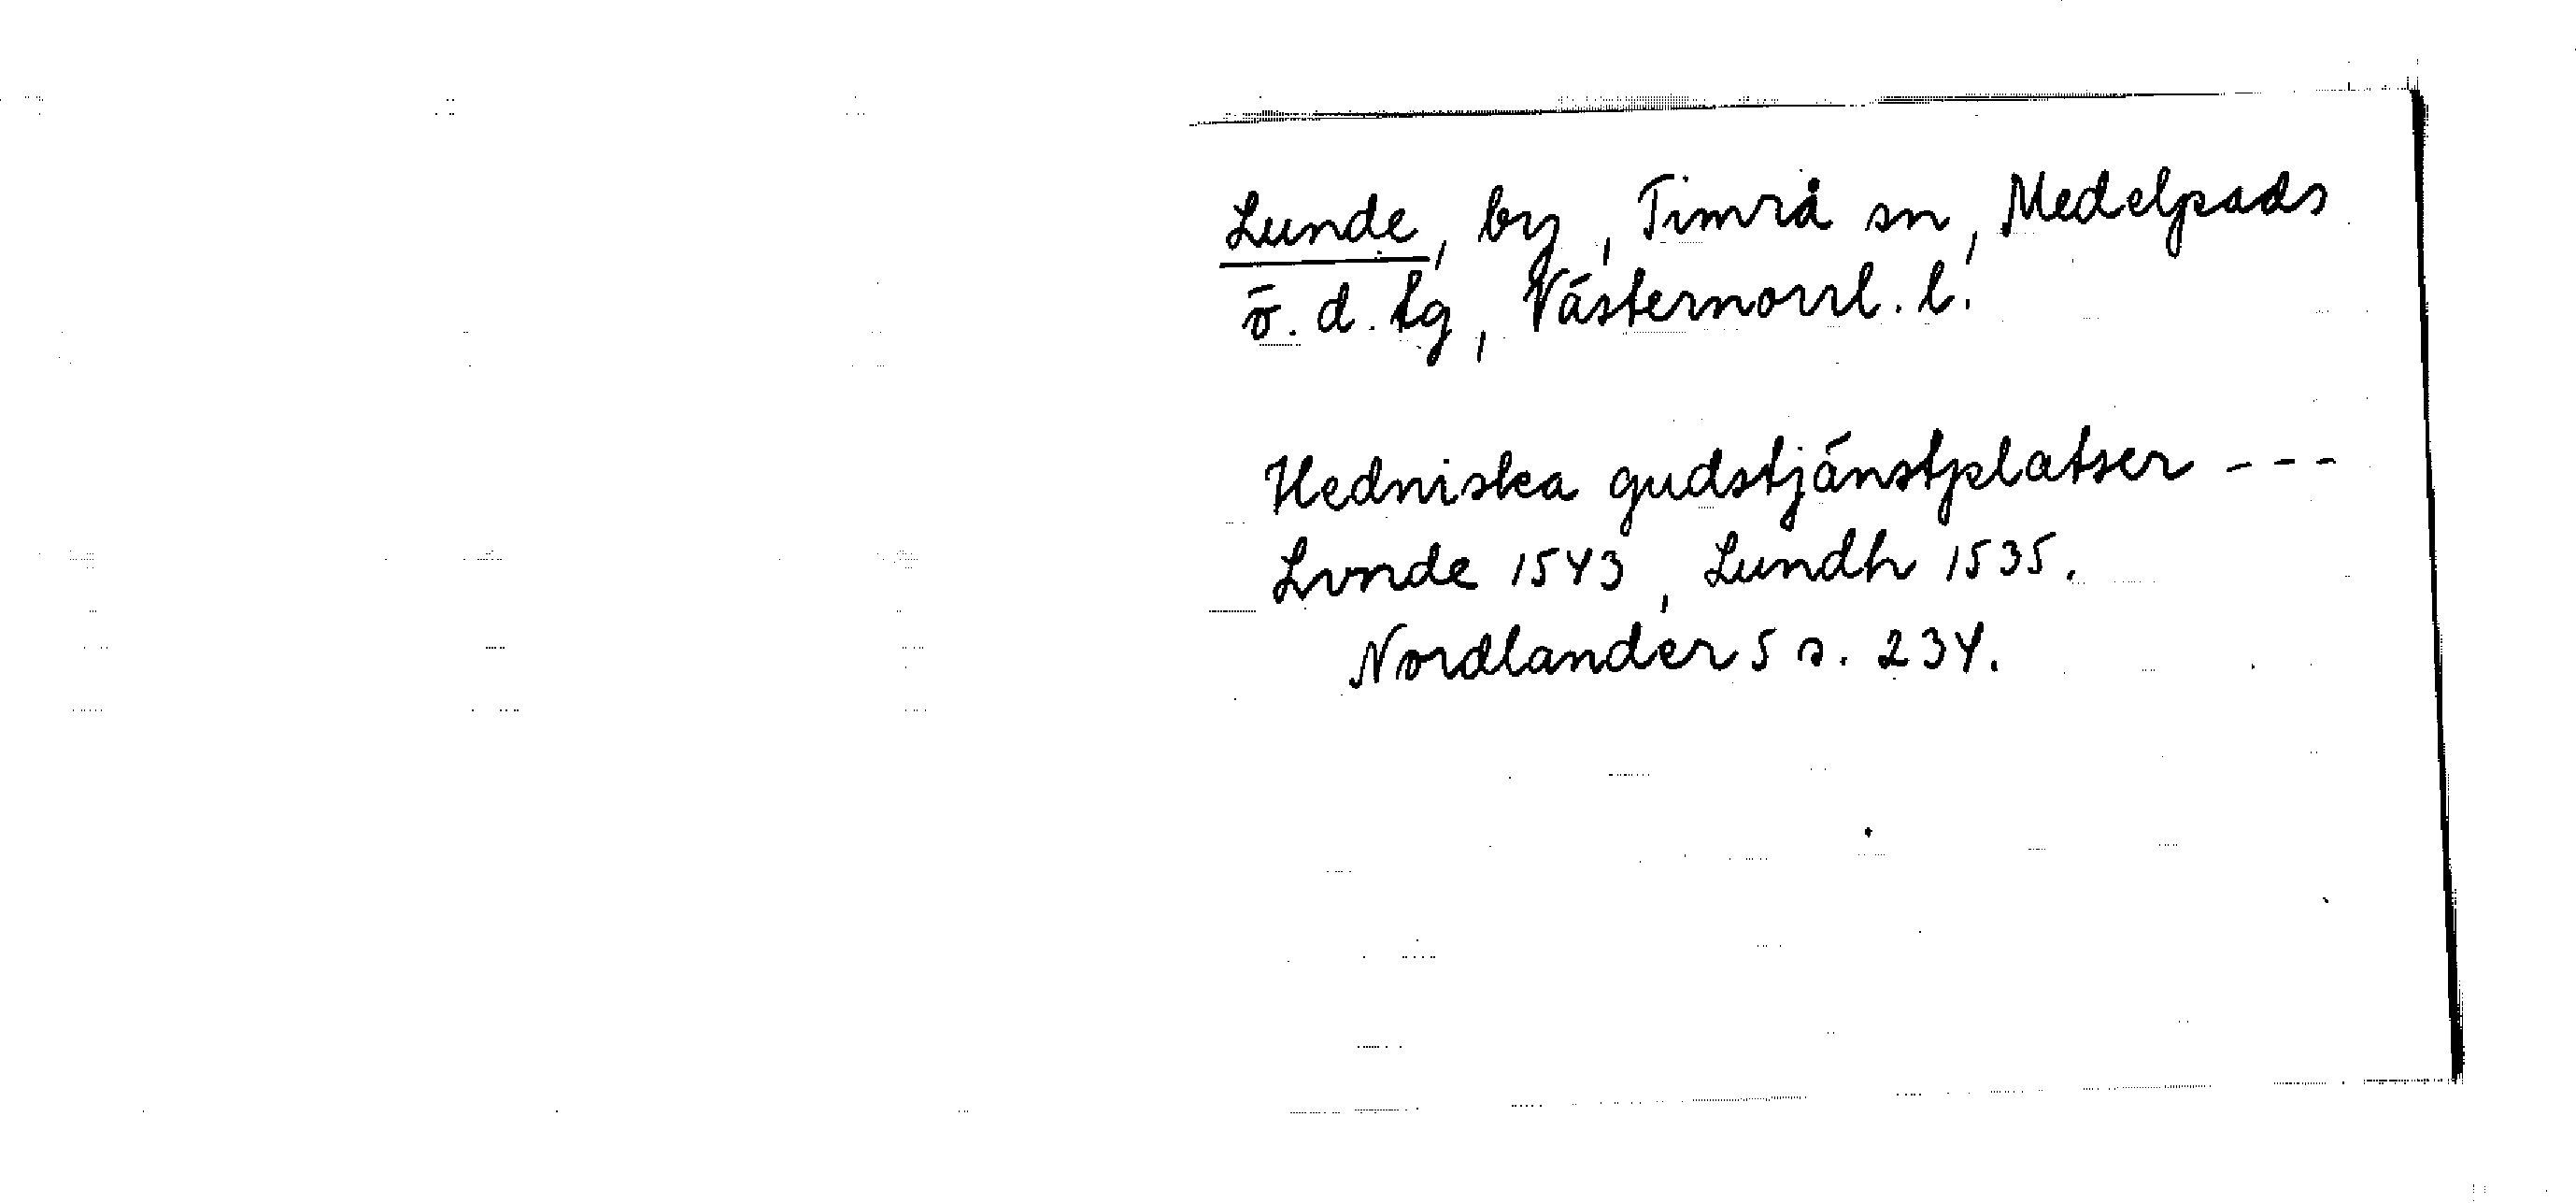 Lunde, by, Timrå sn, Medelpads
ö. d. tg, Västernorrl. l.
Hedniska gudstjänstplatser ---
Lvnde 1543, Lundh 1535.
Nordlander 5 s. 234.